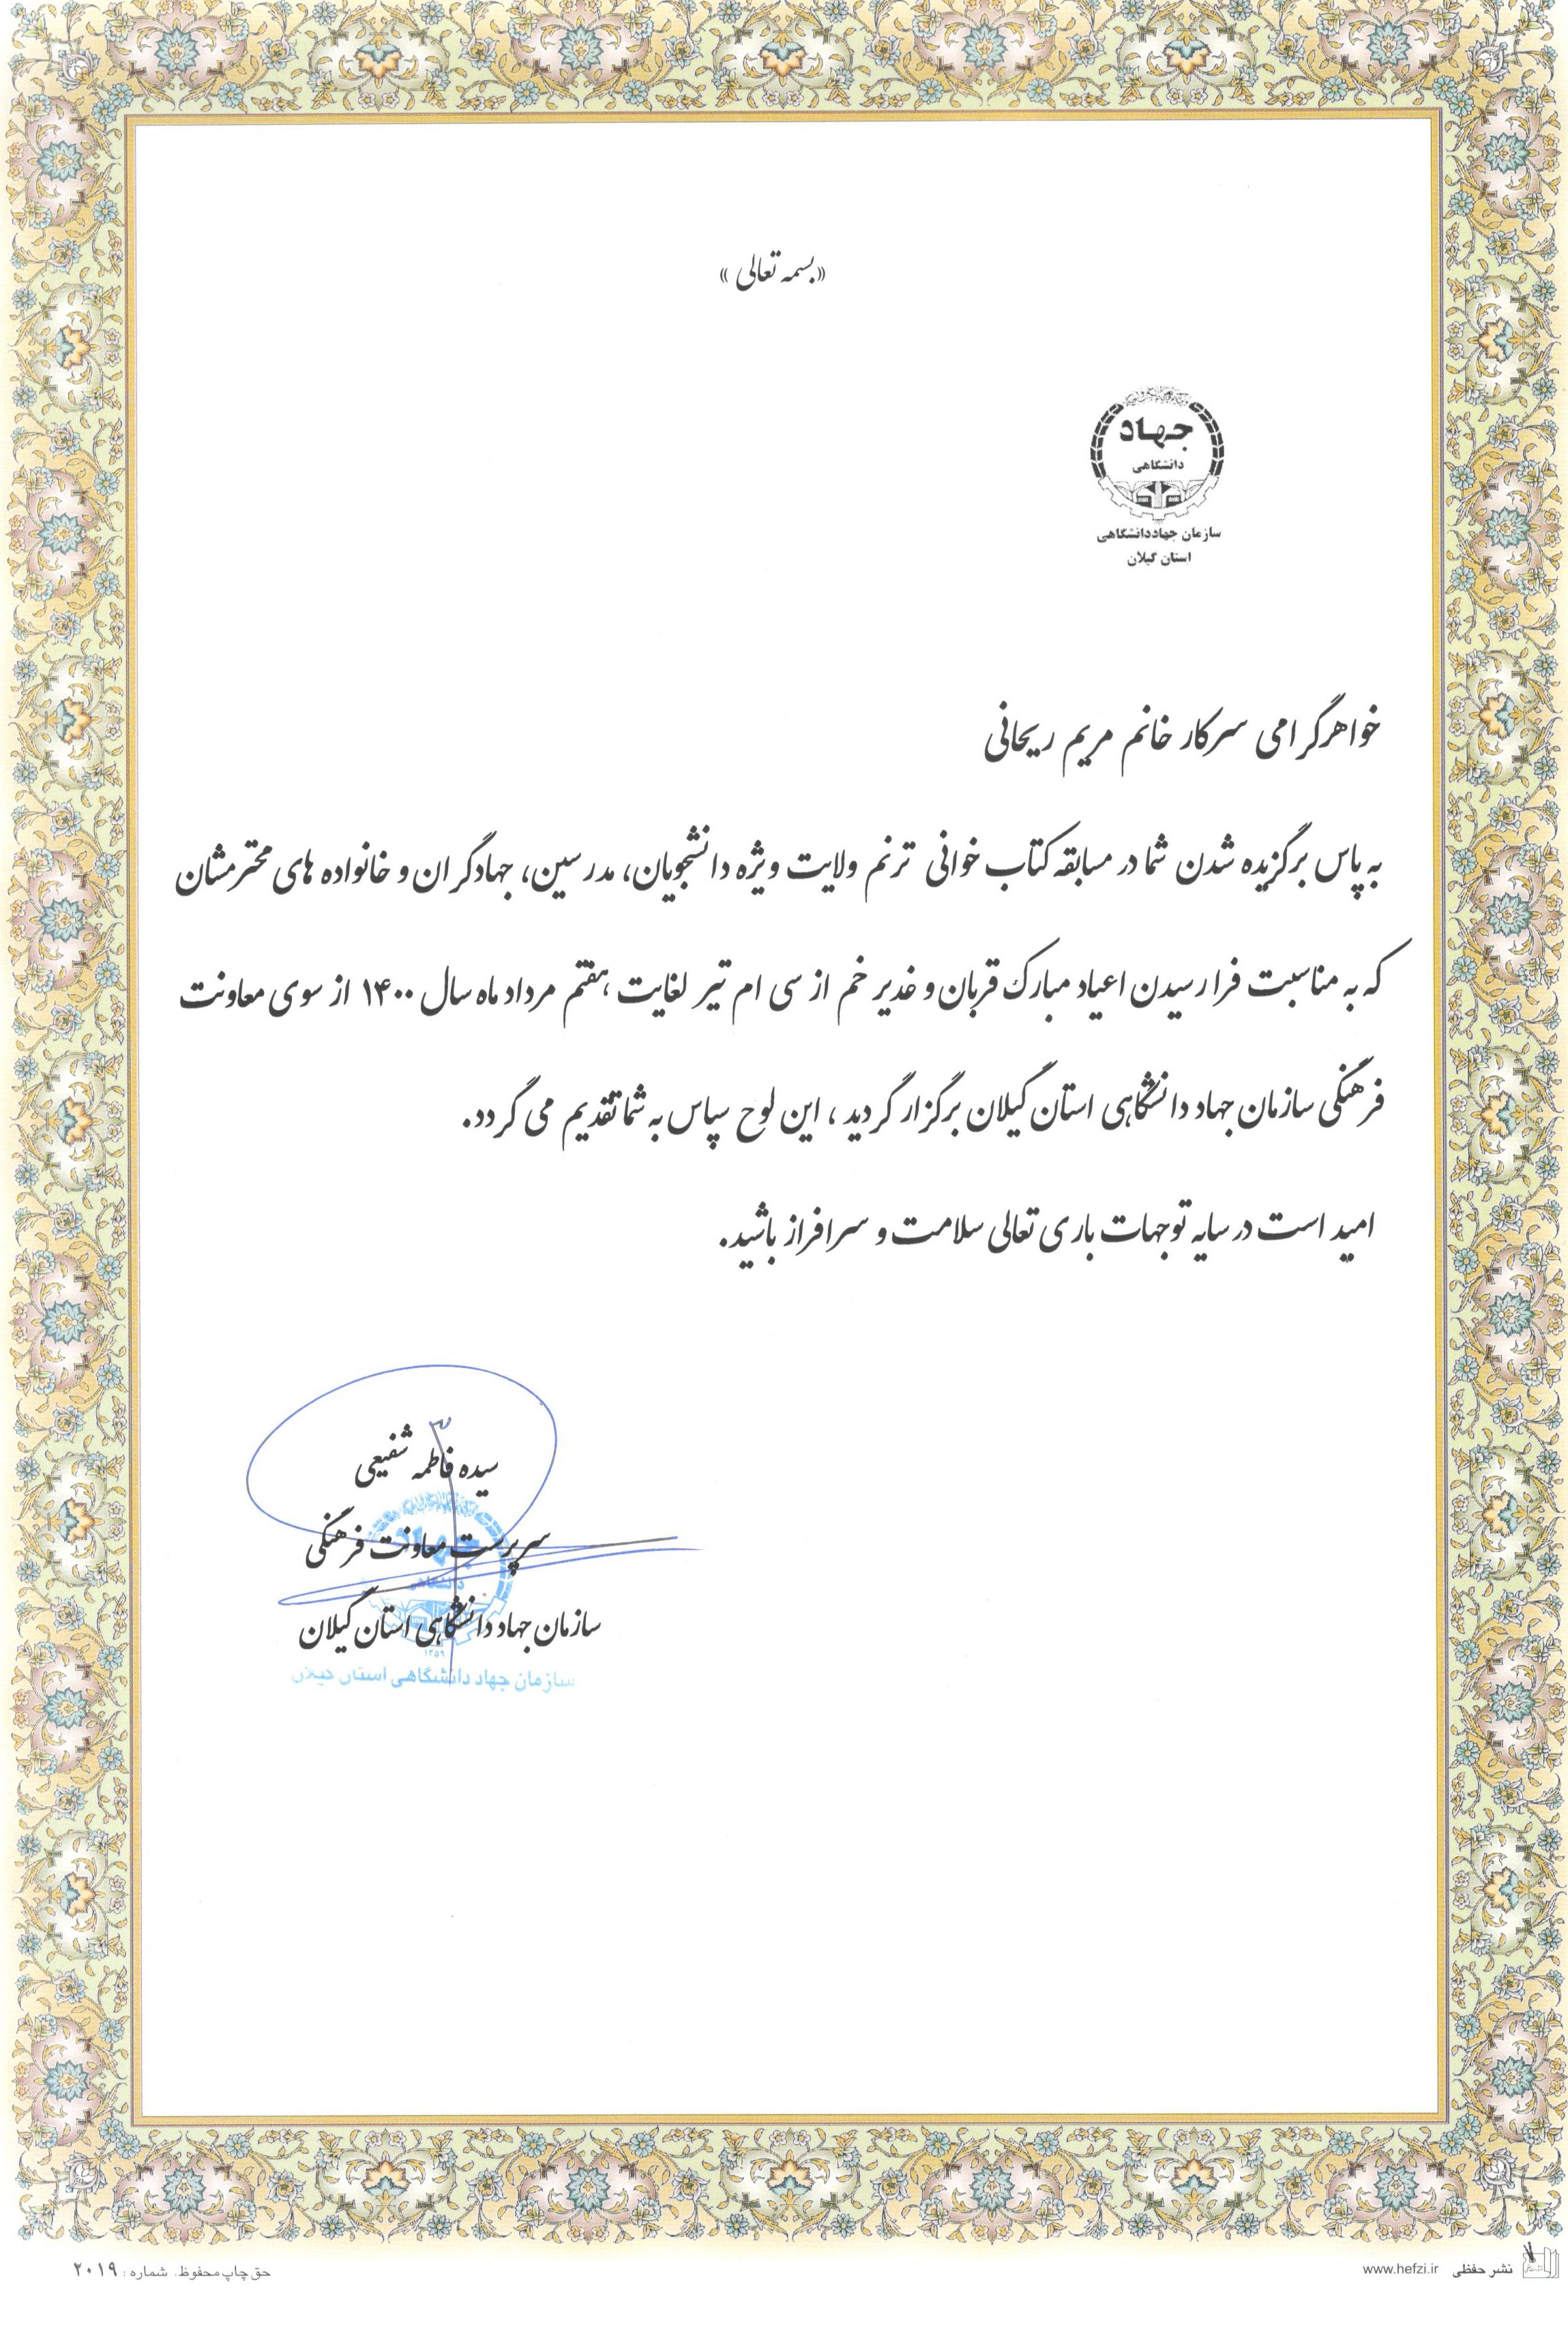 «بسمه تعالی»
جهاد
دانشگاهی
سازمان جهاددانشگاهی
استان گیلان
خواهرگرامی سرکار خانم مریم ریحانی
به پاس برگزیده شدن شما در مسابقه کتاب خوانی ترنم ولایت ویژه دانشجویان، مدرسین، جهادگران و خانواده های محترمشان
که به مناسبت فرا رسیدن اعیاد مبارک قربان و غدیر خم از سی ام تیر لغایت هفتم مرداد ماه سال ۱۴۰۰ از سوی معاونت
فرهنگی سازمان جهاد دانشگاهی استان گیلان برگزار گردید ، این لوح سپاس به شما تقدیم می گردد.
امید است در سایه توجهات باری تعالی سلامت و سرافراز باشید.
سیده فاطمه شفیعی
سرپرست معاونت فرهنگی
سازمان جهاد دانشگاهی استان گیلان
جهاد
دانشگاهی
۱۳۵۹
سازمان جهاد دانشگاهی استان گیلان
نشر حفظی www.hefzi.ir
حق چاپ محفوظ. شماره: ۲۰۱۹